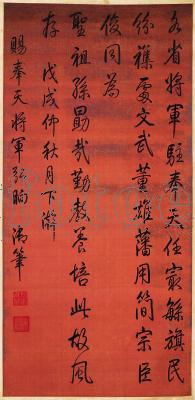 各省將軍駐奉天任最繁旗民
紛雜處文武董雄藩用簡宗臣
俊同為
聖祖孫勗哉勤教養培此故風
存 戊戌仲秋月下澣
賜奉天將軍弘晌 御筆